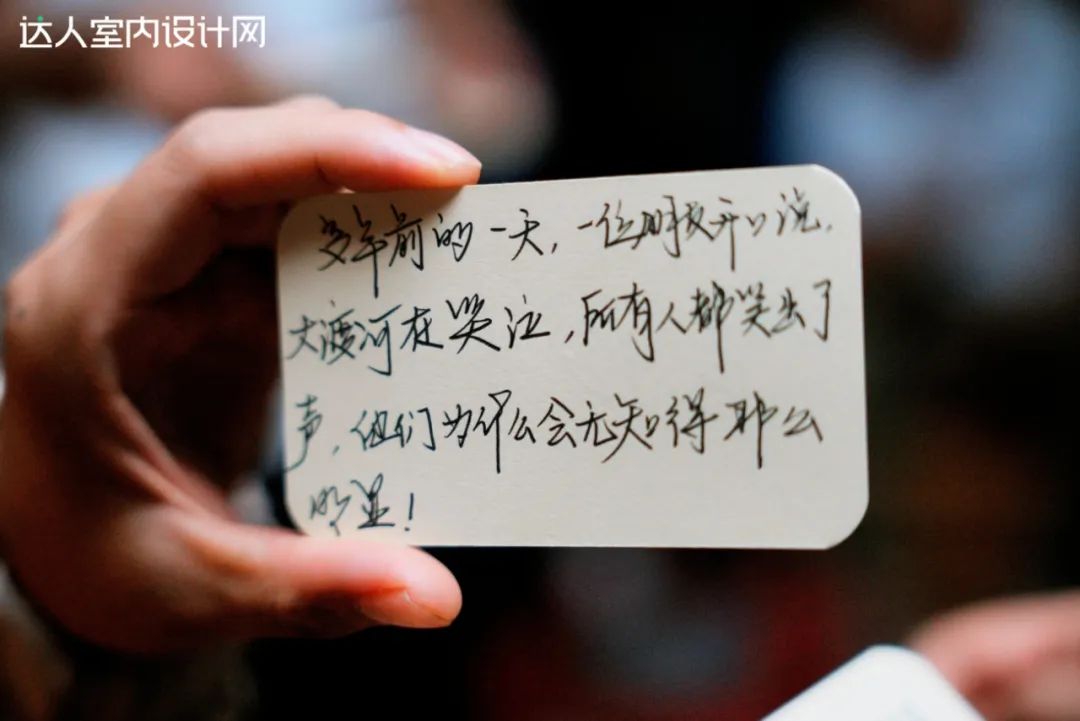 达人室内设计网
多年前的一天，一位朋友开口说，
大渡河在哭泣，所有人都哭出了
声，他们为什么会无知得那么
明显！